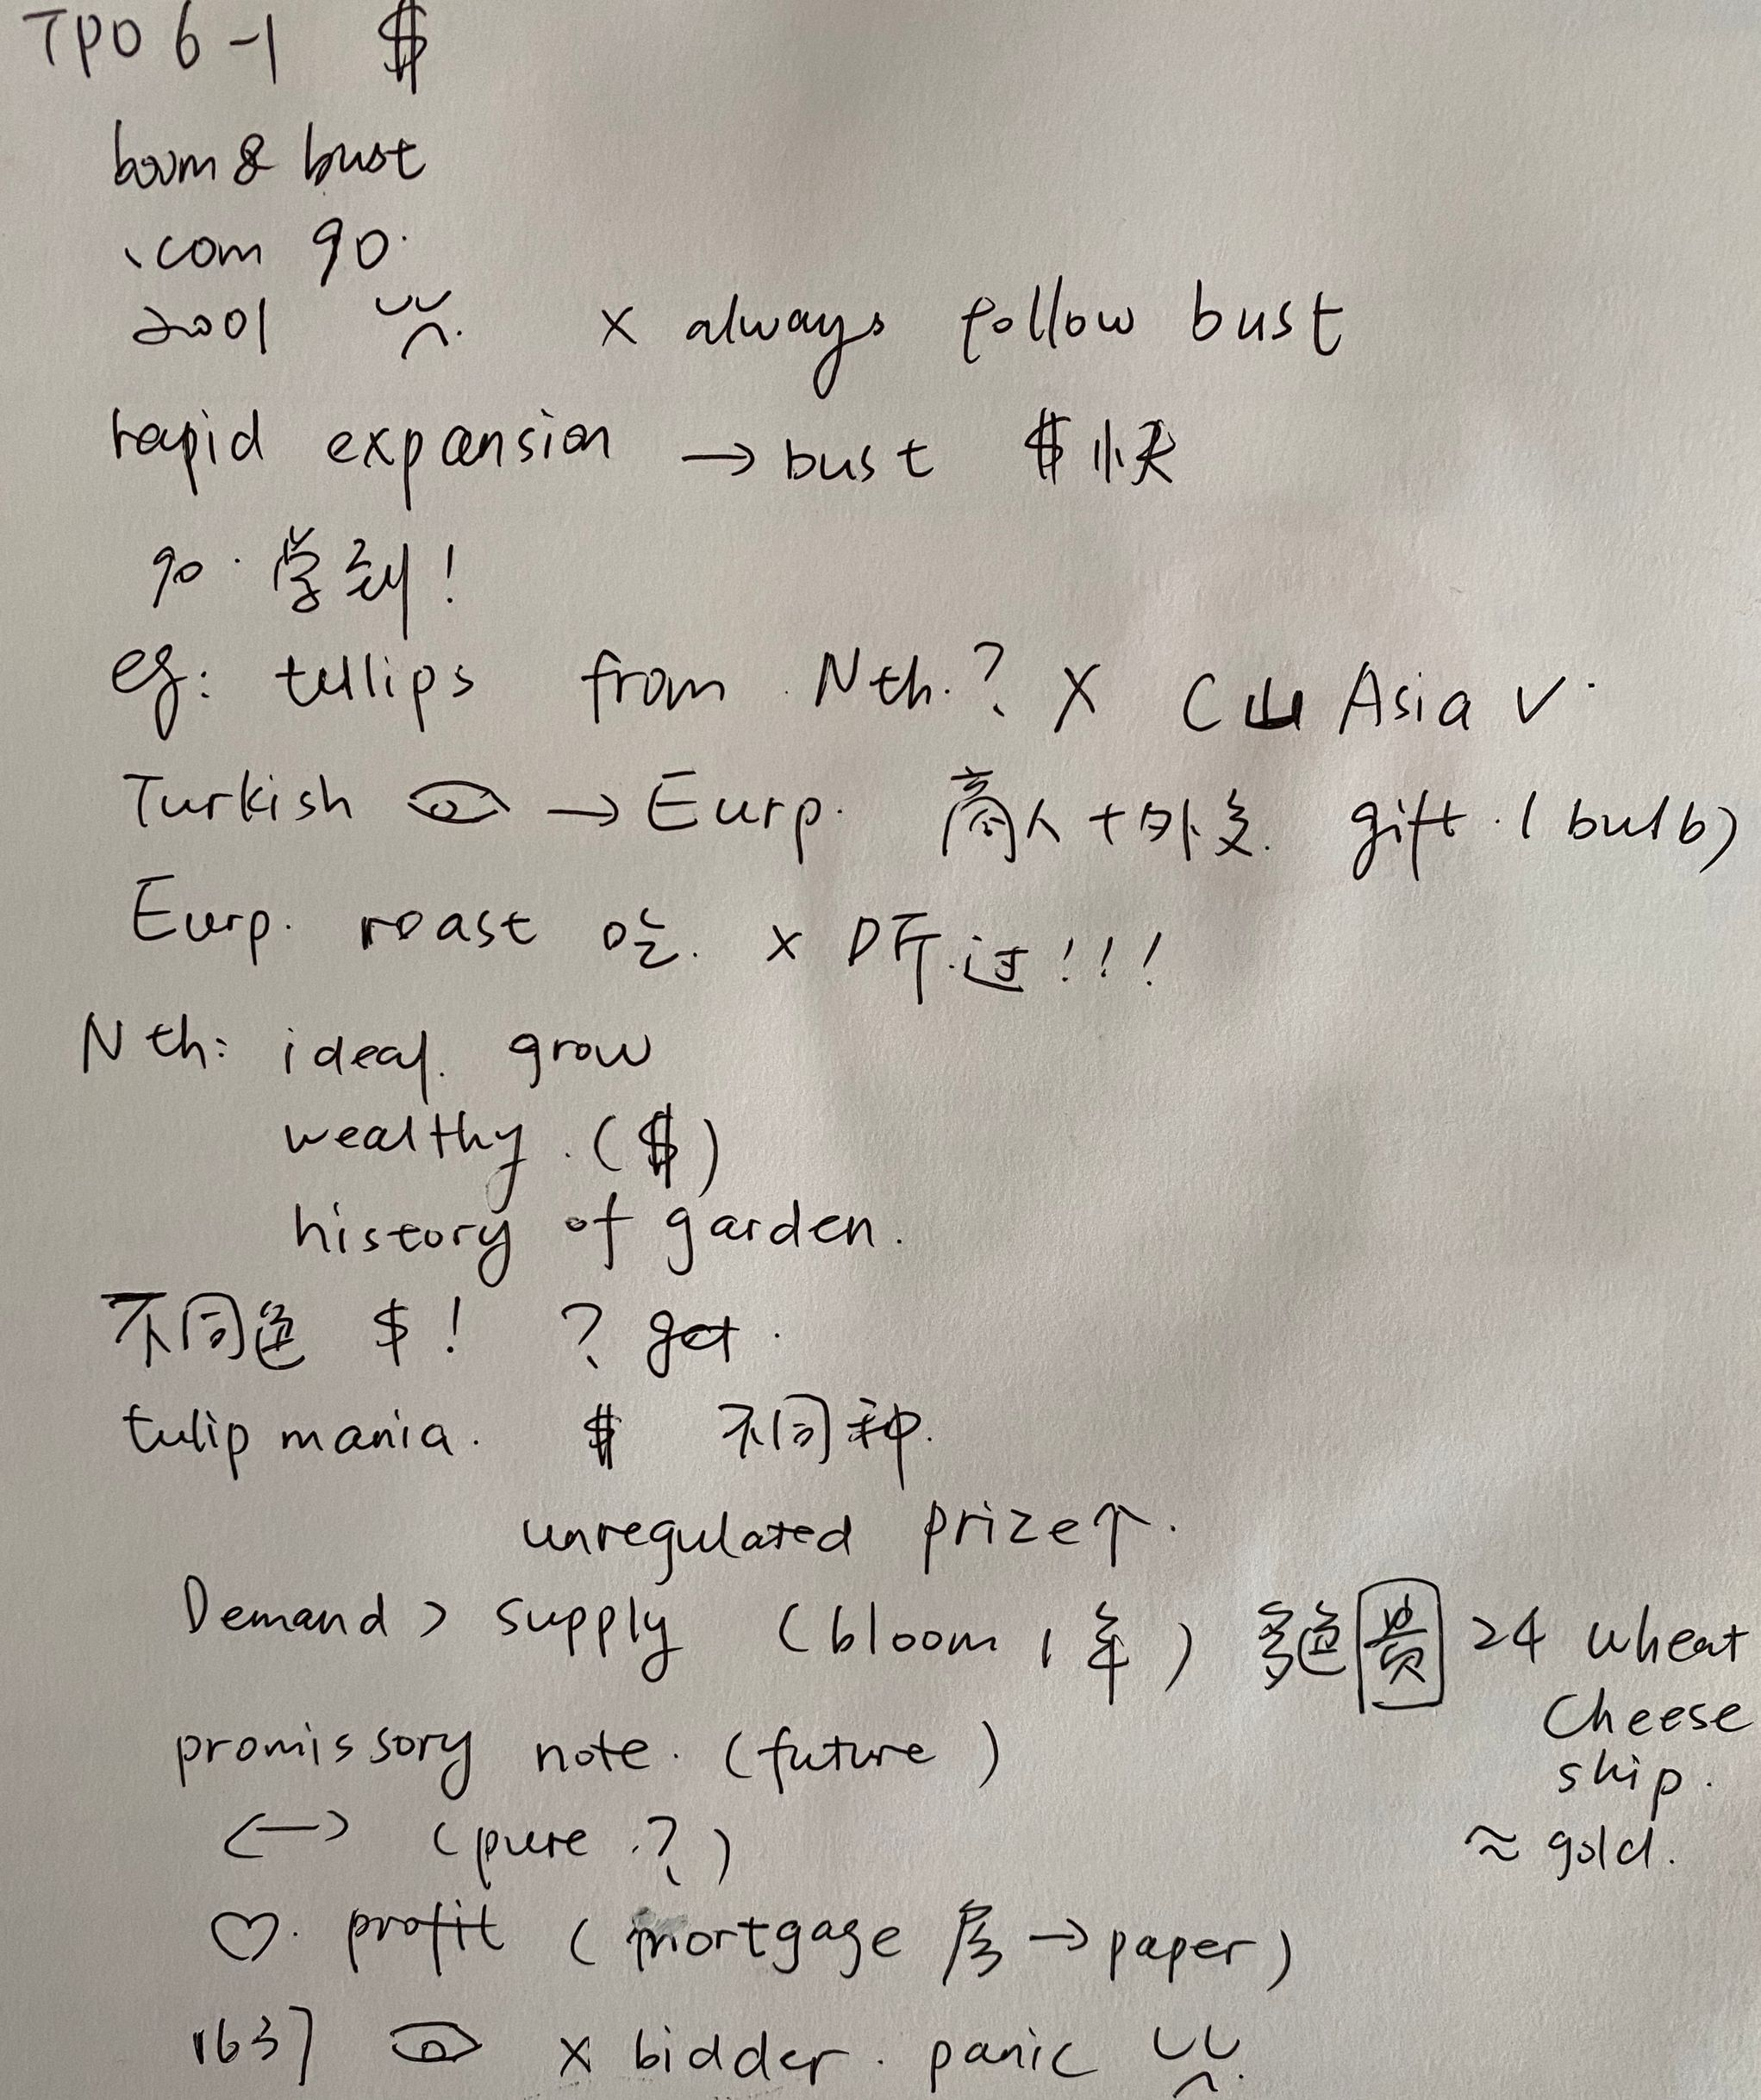 TPO 6-1 $
boom & bust
.com 90.
2001 x always follow bust
rapid expansion → bust $ 快
90. 学到!
eg: tullips from Nth.? X C山 Asia √.
Turkish → Eurp. 商人+外交. gift. (bulb)
Eurp. roast 吃. x 听过!!!
Nth: ideal. grow
wealthy. ($)
history of garden.
不同色 $! ? get.
tulip mania. $ 不同种.
unregulated prize↑.
Demand > supply (bloom 1年) 多色 贵 24 wheat
cheese
promissory note. (future)
ship.
←→ (pure.?)
≈ gold.
♡. profit (mortgage 房→paper)
1637 x bidder. panic